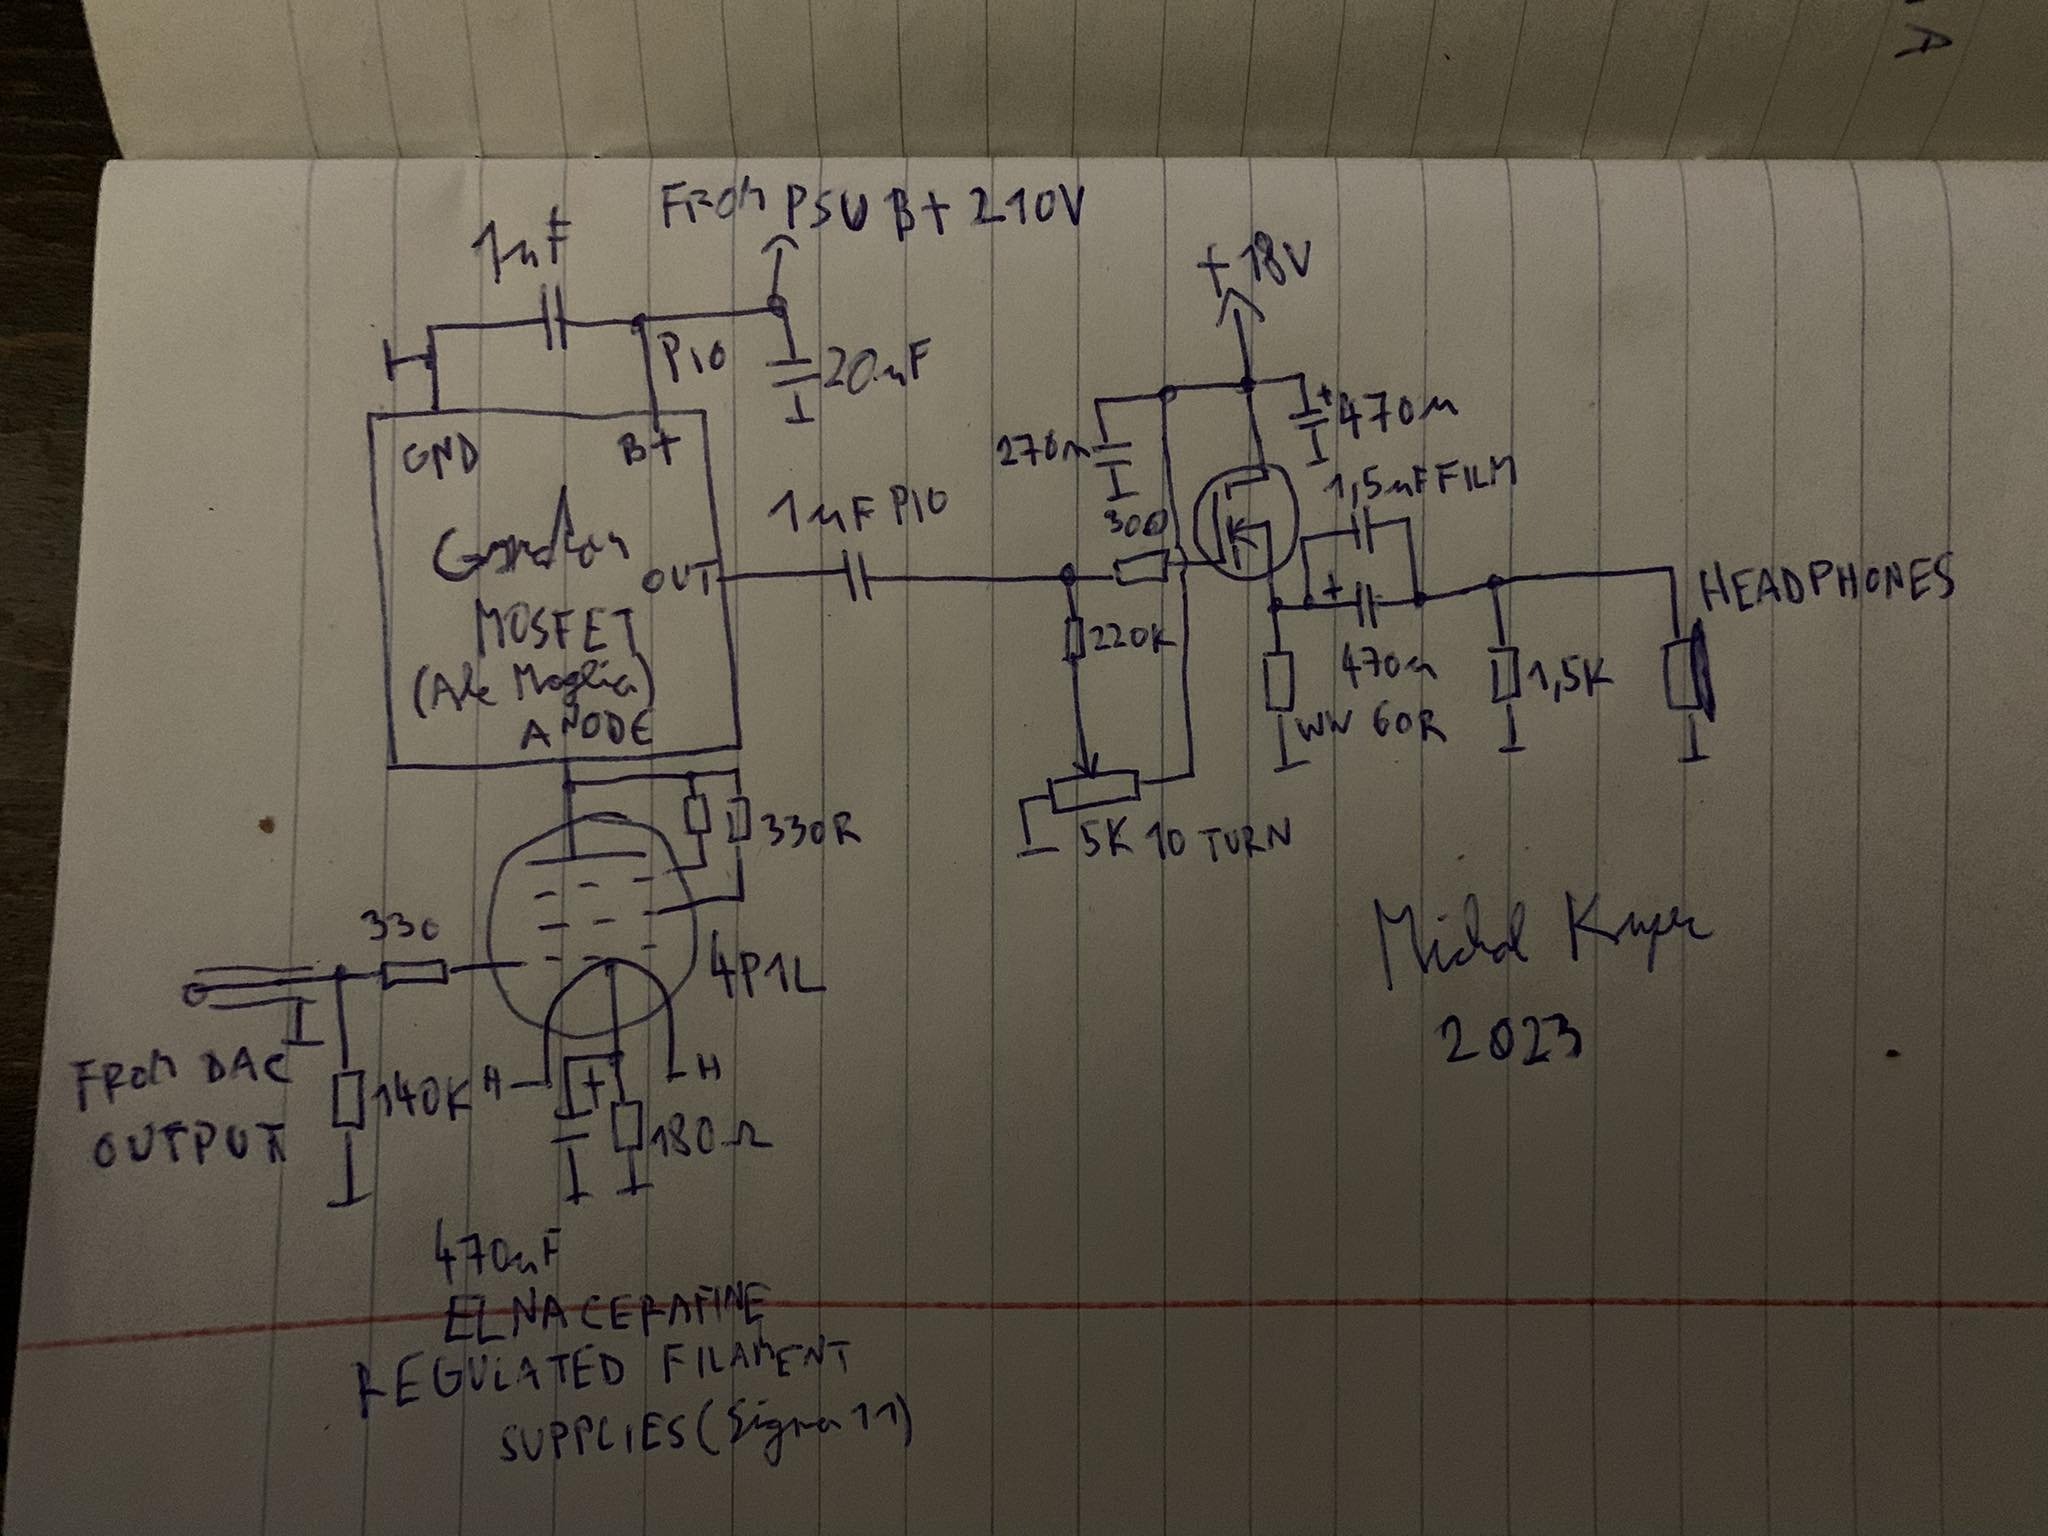 A
FROM PSU B+ 210V
1uF
+18V
P10
20uF
470u
270n
GND
B+
1,5uF FILM
1uF P10
300
MOSFET
OUT
HEADPHONES
(Ale Moglia)
220K
470u
1,5K
ANODE
WW 60R
330R
5K 10 TURN
330
4P1L
Michal
2023
FROM DAC
OUTPUT
140K
H
+
H
180Ω
470uF
ELNA CERAFINE
REGULATED FILAMENT
SUPPLIES (Sigma 11)